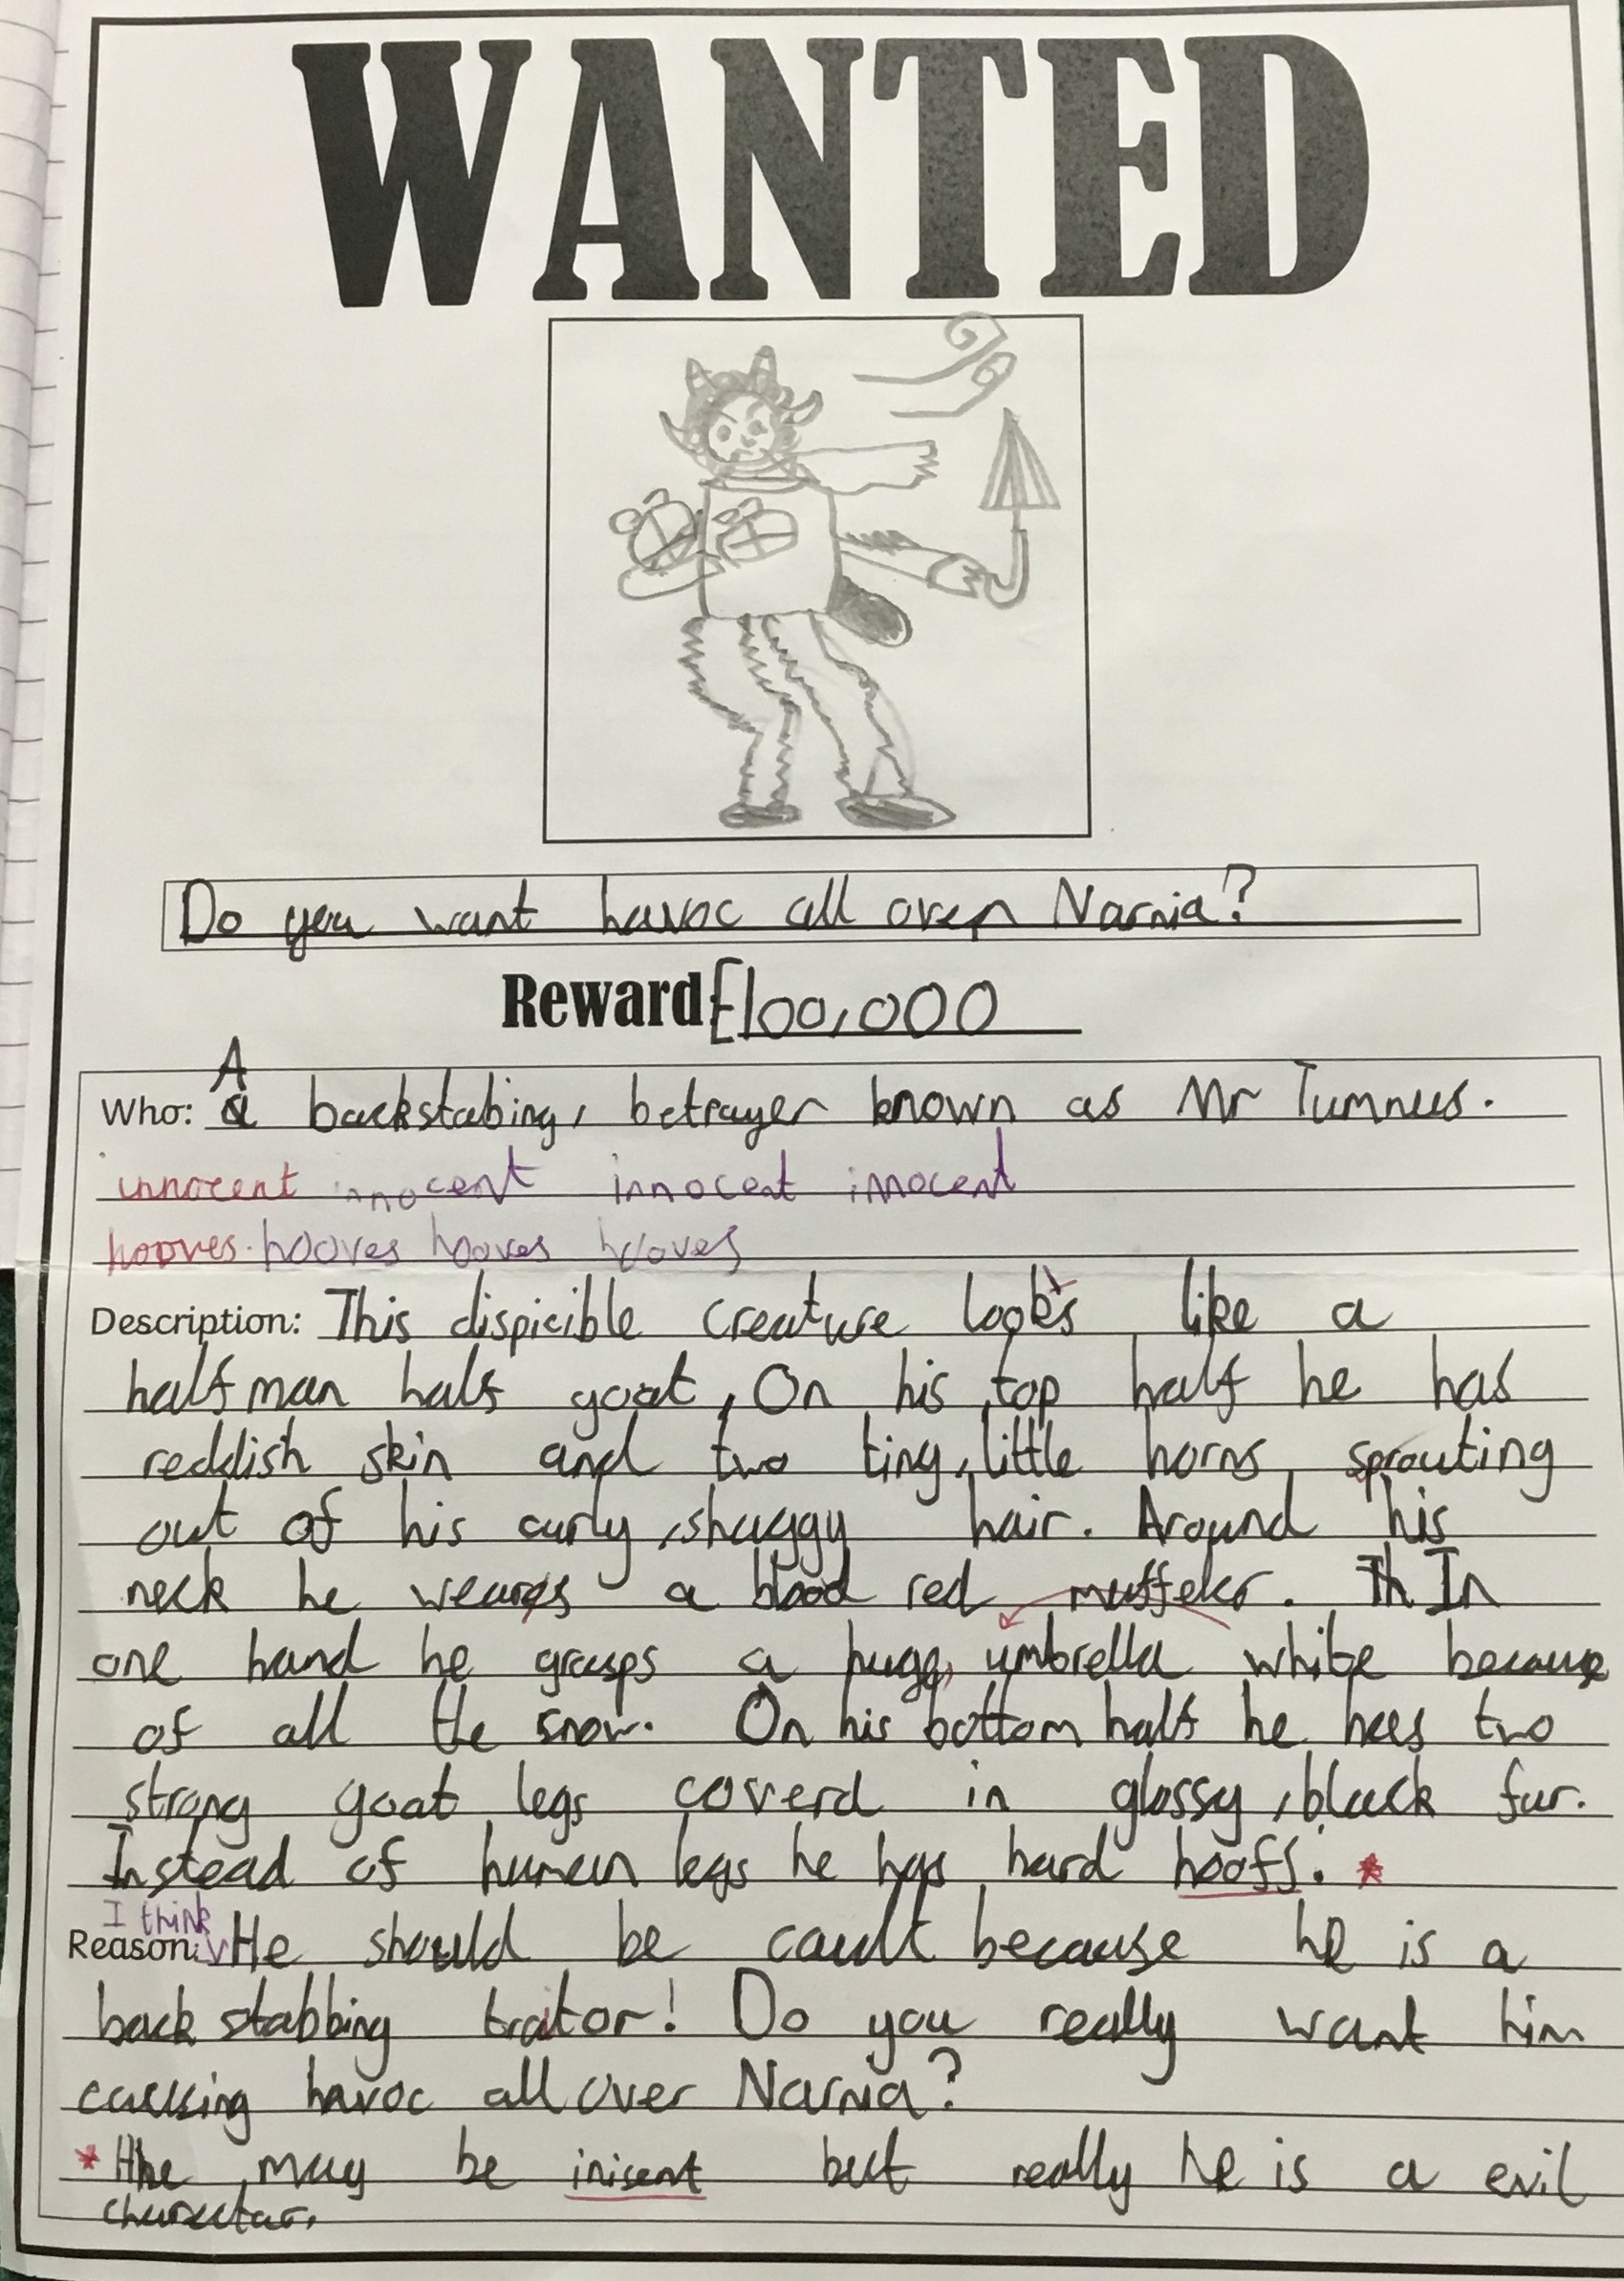 WANTED
Do you want havoc all over Narnia?
Reward £100,000
A
Who: a backstabing, betrayer known as Mr Tumnus.
innocent innocent innocent innocent
hooves. hooves hooves hooves
Description: This dispicible creature looks like a
half man half goat. On his top half he has
reddish skin and two tiny, little horns sprouting
out of his curly, shaggy hair. Around his
neck he wears a blood red muffeler. Th In
one hand he grasps a huge, umbrella white because
of all the snow. On his bottom half he has two
strong goat legs coverd in glossy, black fur.
Instead of human legs he has hard hoofs. *
I think
Reason: He should be caught because he is a
back stabbing traitor! Do you really want him
causing havoc all over Narnia?
* Hhe may be inisent but really he is a evil
charectar.